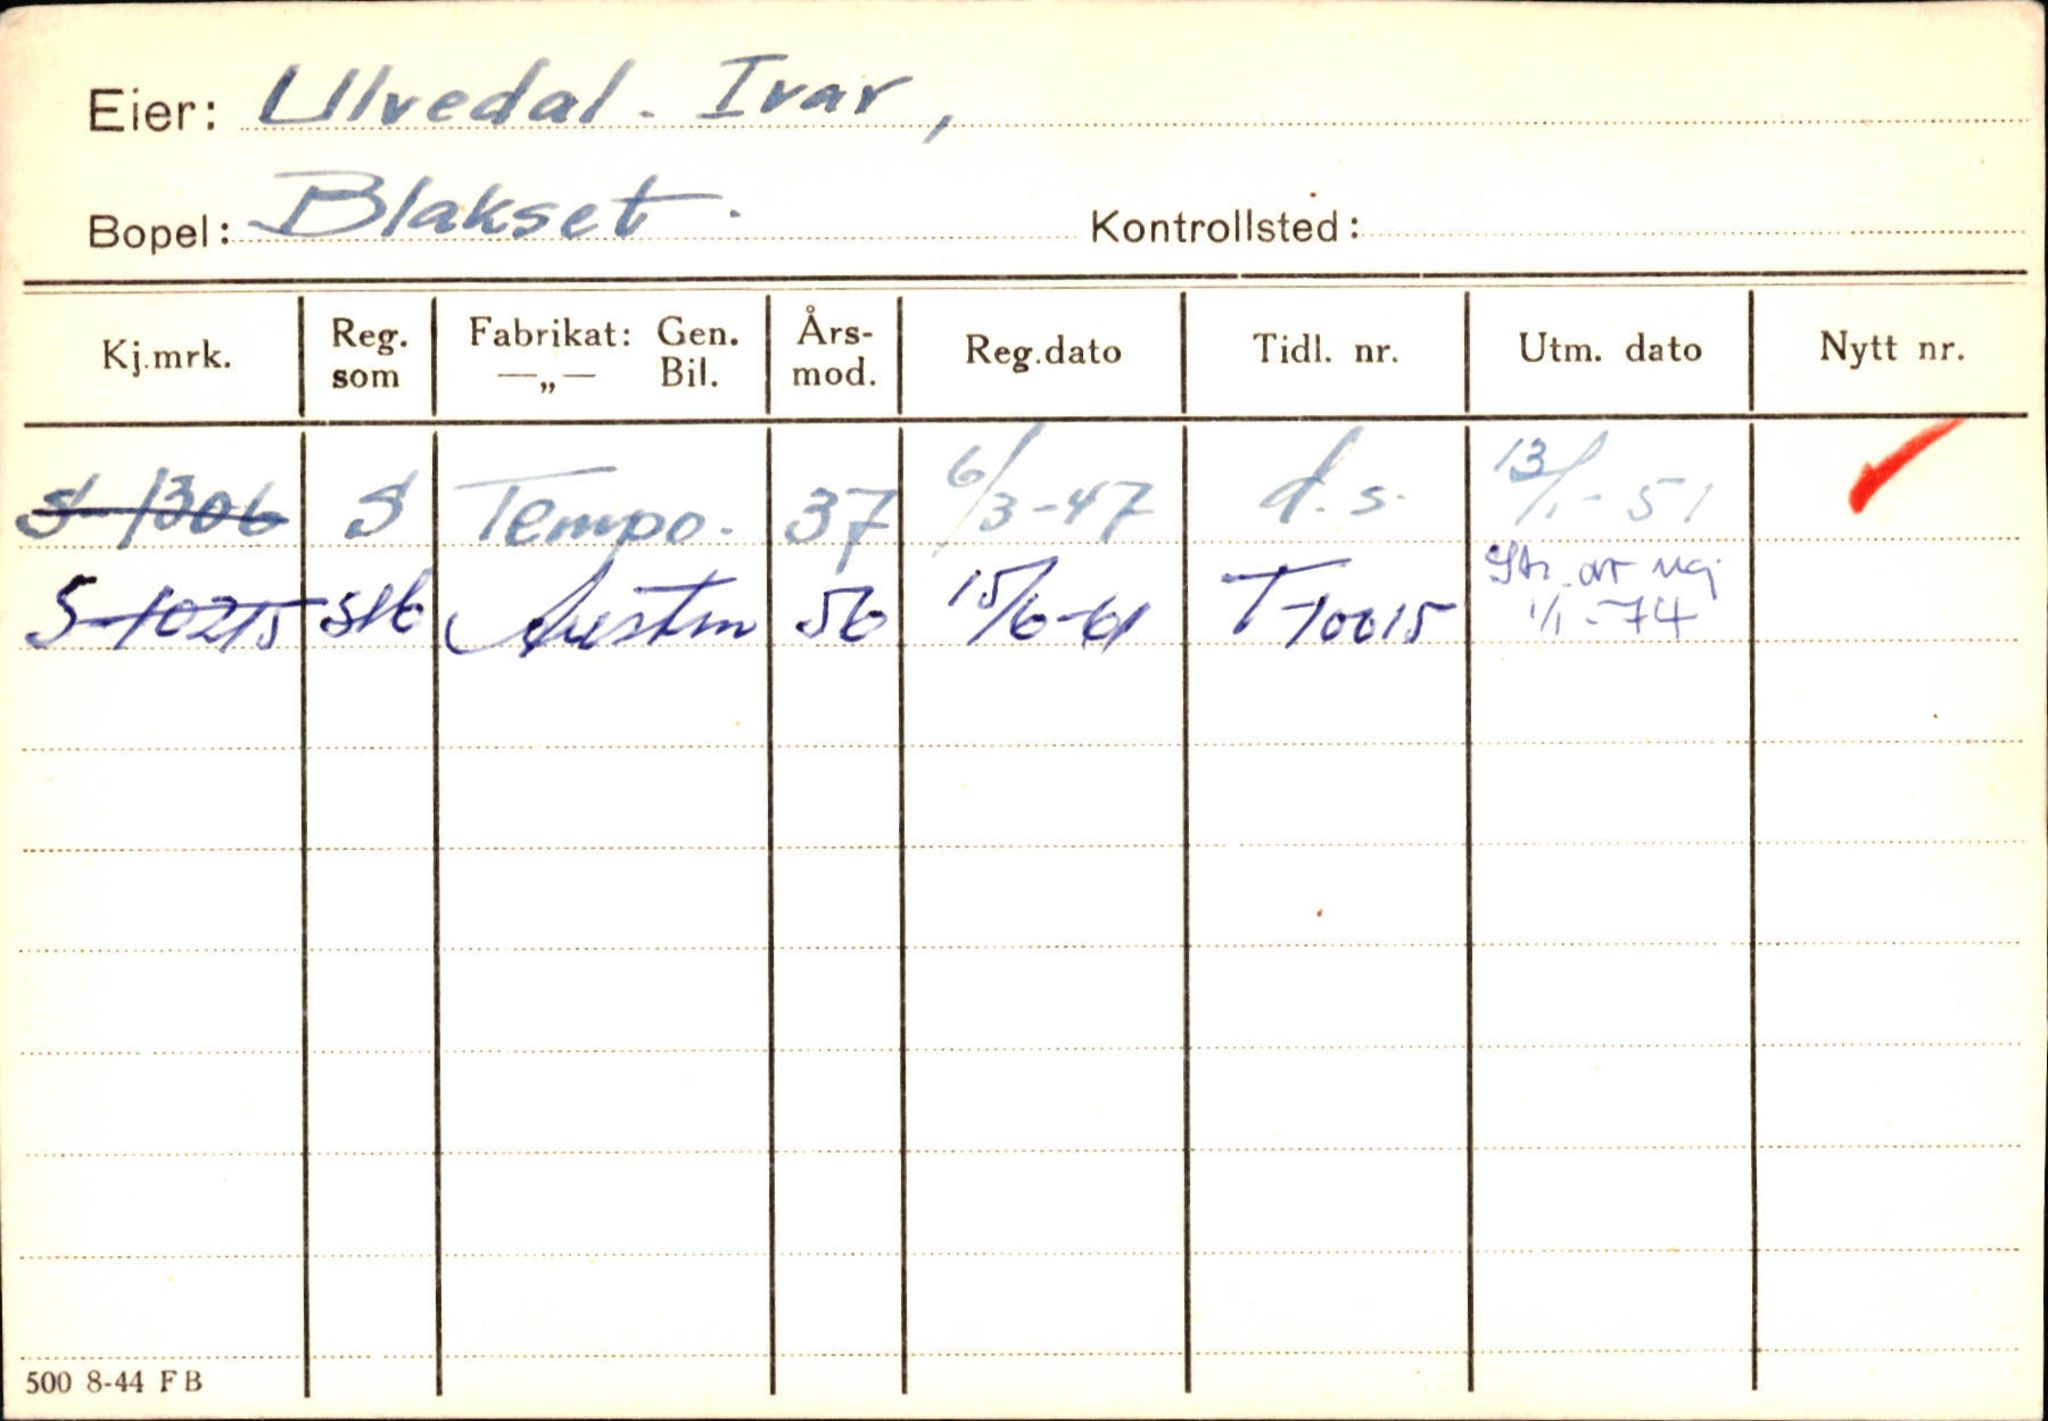 Eier: Ulvedal. Ivar,
Bopel: Blakset. Kontrollsted:
Kj.mrk. Reg. som Fabrikat: Gen. —„— Bil. Års-mod. Reg.dato Tidl. nr. Utm. dato Nytt nr.
S-1306 S Tempo. 37 6/3-47 d.s. 13/1-51
S-10215 stb Austin 56 15/6-61 T-10015 1/1-74
500 8-44 FB